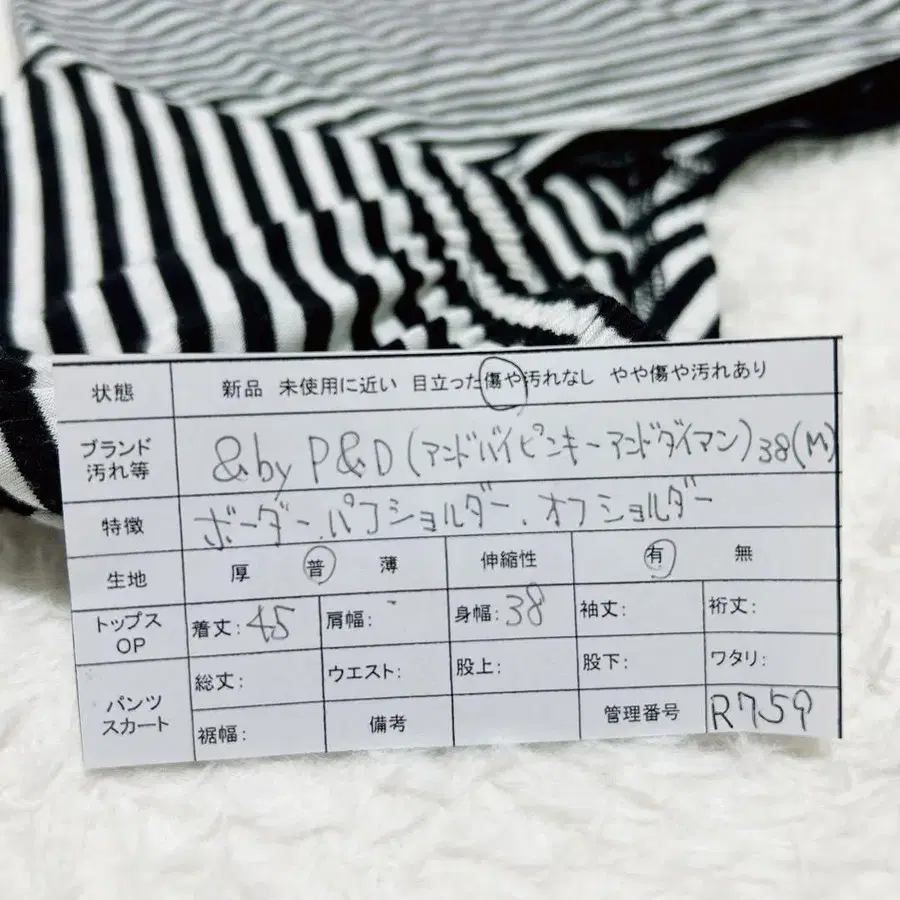 状態 新品 未使用に近い 目立った傷や汚れなし やや傷や汚れあり
ブランド
汚れ等
&by P&D (アンドバイピンキーアンドダイアン) 38(M)
特徴 ボーダー.パフショルダー.オフショルダー
生地 厚 普 薄 伸縮性 有 無
トップス
OP
着丈: 45 肩幅: - 身幅: 38 袖丈: 裄丈:
パンツ
スカート
総丈: ウエスト: 股上: 股下: ワタリ:
裾幅: 備考 管理番号 R759